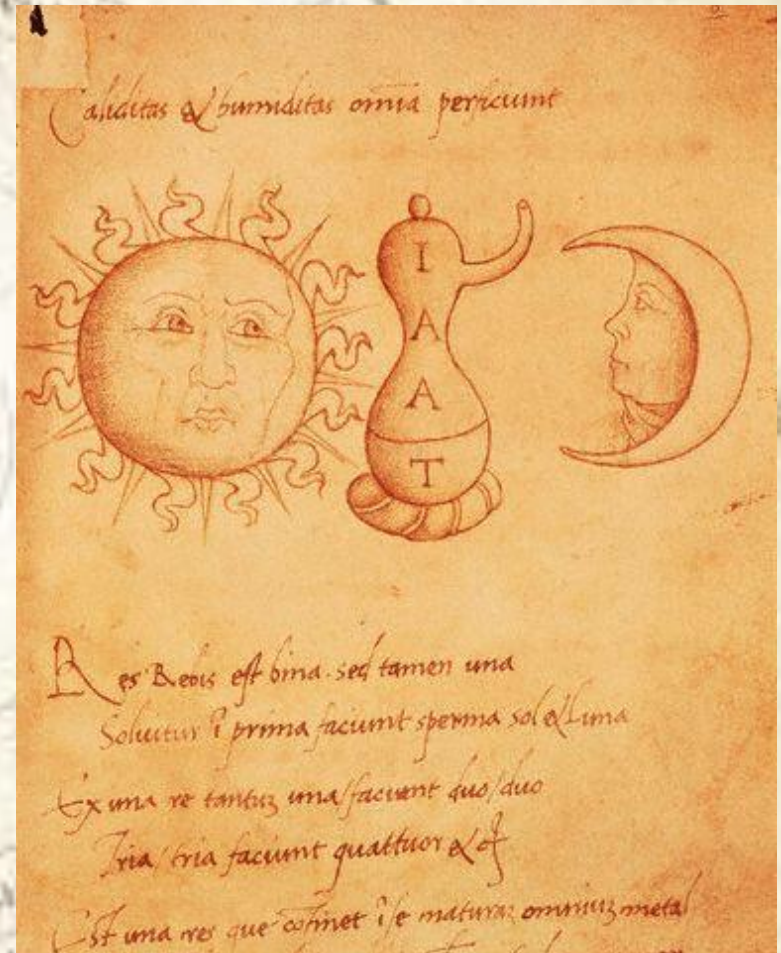 Caliditas & humiditas omīa perficiunt
I
A
A
T
Res Rebis est bina. sed tamen una
Soluitur ī prima faciunt sperma sol & Luna
Ex una re tantuz una / faciunt duo / duo
Tria / tria faciunt quattuor &
Est una res que in se omniuz metal